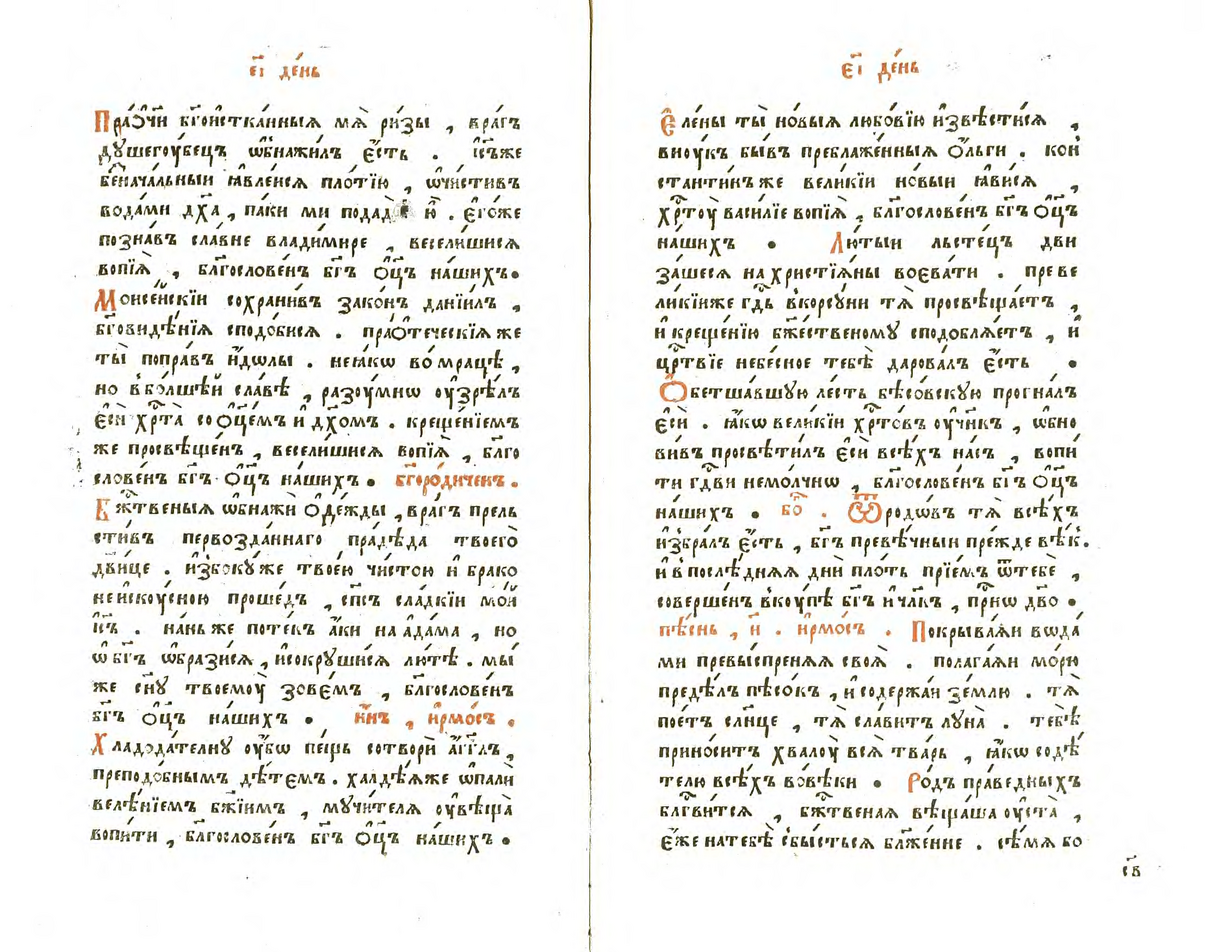 є҃і де́нь
Пра́ѻ҃чи бг҃ои́стка́нныѧ мѧ̀ ри́зы , вра́гъ
дꙋшегоу́бецъ ѡ҆бнажи́лъ є҆́сть . і҆с҃ъже
безнача́льныи ꙗ҆вле́йсѧ пло́тїю , ѡ҆чи́стивъ
вода́ми дх҃а , па́ки ми пода́дѐ ю҆̀ . є҆го́же
позна́въ сла́вне влади́мире , весели́шисѧ
вопїѧ̀ , благослове́нъ бг҃ъ ѻ҆ц҃ъ на́шихъ .
Моисе́йскїи сохрани́въ зако́нъ данїи́лъ ,
бг҃ови́дѣнїѧ сподо́бисѧ . пра́ѻтеческїѧже
ты̀ попра́въ и҆́дѡлы . неꙗ҆́кѡ во́ мрацѣ ,
но в бо́лшей сла́вѣ , разоу́мнѡ оу҆зрѣ́лъ
є҆сѝ хр҃та̀ со ѻ҆ц҃е́мъ и҆ дх҃омъ . креще́нїемъ
же просвѣще́нъ , весели́шисѧ вопїѧ̀ , бл҃го
слове́нъ бг҃ъ ѻ҆ц҃ъ на́шихъ . бг҃оро́диченъ .
Бж҃твеныѧ ѡ҆бнажѝ ѻ҆де́жды , вра́гъ прель
сти́въ первозда́ннаго пра́дѣда твоего̀
дв҃ице . и҆збоку́же твое́ю чи́стою и҆ брако
неискоу́сною проше́дъ , сп҃съ сла́дкїи мо́й
і҆с҃ъ . на́ньже поте́къ а҆́ки на а҆да́ма , но
ѡ҆ бг҃ъ ѡ҆брази́сѧ , и҆сокруши́сѧ лю́тѣ . мы́
же сн҃у твоемоу̀ зове́мъ , благослове́нъ
бг҃ъ ѻ҆ц҃ъ на́шихъ . и҆́нъ , і҆рмо́съ .
Хладода́телну оу҆́бѡ пе́щь сотворѝ а҆́гг҃лъ ,
преподо́бнымъ дѣ́темъ . халдѣ́ѧже ѡ҆палѝ
велѣ́нїемъ бж҃їимъ , мучи́телѧ оу҆вѣща̀
вопи́ти , благослове́нъ бг҃ъ ѻ҆ц҃ъ на́шихъ .
є҃і де́нь
Є҆ле́ны ты̀ но́выѧ любо́вїю и҆звѣсти́сѧ ,
вноу́къ бы́въ преблаже́нныѧ ѻ҆́льги . кон
станти́нъже вели́кїи но́выи ꙗ҆ви́сѧ ,
хр҃тоу̀ васи́лїе вопїѧ̀ , благослове́нъ бг҃ъ ѻ҆ц҃ъ
на́шихъ . Лю́тыи льсте́цъ дви
за́шесѧ на христїѧ́ны воева́ти . преве
ли́кїиже гд҃ь в корсу́ни тѧ̀ просвѣща́етъ ,
и҆ креще́нїю бж҃ественому сподоблѧ́етъ , и҆
цр҃твїе небе́сное тебѣ̀ дарова́лъ є҆́сть .
Ѻ҆бетша́вшую ле́сть бѣсо́вскую прогна́лъ
є҆сѝ . ꙗ҆́кѡ вели́кїи хр҃то́въ оу҆чн҃къ , ѡ҆бно
ви́въ просвѣти́лъ є҆сѝ всѣ́хъ на́съ , вопи
ти гд҃ви немо́лчнѡ , благослове́нъ бг҃ъ ѻ҆ц҃ъ
на́шихъ . бо҃ . Ѿродѡ́въ тѧ̀ всѣ́хъ
и҆збра́лъ є҆́сть , бг҃ъ превѣ́чныи пре́жде вѣ́к .
и҆ в послѣ́днѧѧ днѝ пло́ть прїе́мъ ѿтебѐ ,
соверше́нъ вкоу́пѣ бг҃ъ и҆ чл҃къ , пр҃нѡ дв҃о .
пѣ́снь , и҃ . і҆рмо́съ . Покрыва́ѧи вѡда́
ми превы́спренѧѧ своѧ̀ . полага́ѧи мо́рю
предѣ́лъ пѣсо́къ , и҆ содержа́и зе́млю . тѧ̀
пое́тъ сл҃нце , тѧ̀ сла́витъ луна̀ . тебѣ̀
прино́ситъ хвалоу̀ всѧ̀ тва́рь , ꙗ҆́кѡ содѣ́
телю всѣ́хъ во́вѣки . Ро́дъ пра́ведныхъ
блг҃ви́тсѧ , бж҃твеная вѣща́ша оу҆ста̀ ,
є҆́же натебѣ̀ сбы́стьсѧ бл҃же́нне . сѣ́мѧ бо
с҃в